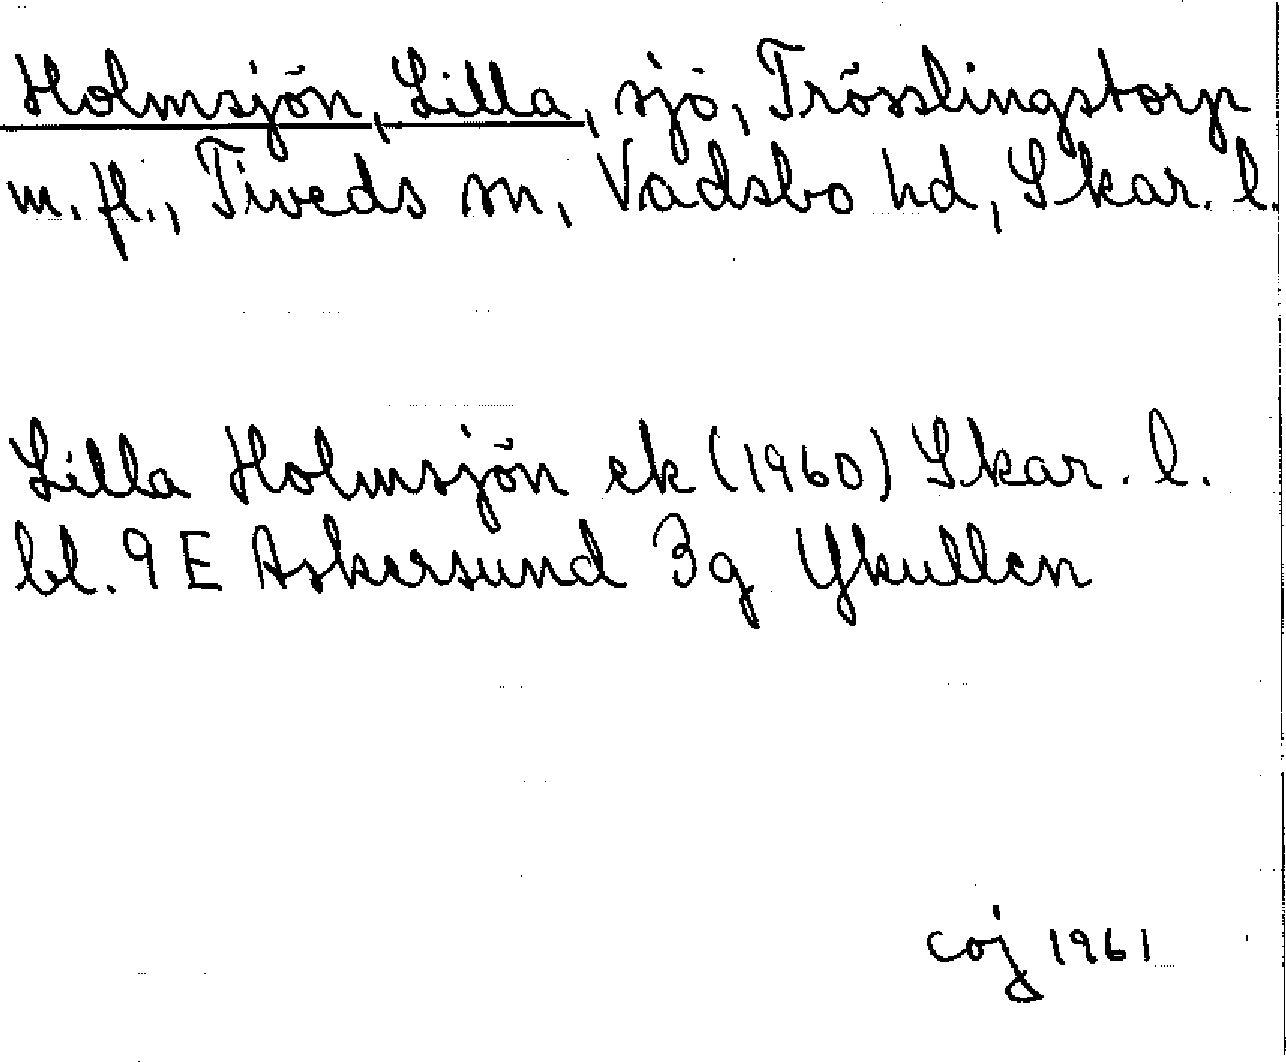 Holmsjön, Lilla, sjö, Trösslingstorp
m. fl., Tiveds sn, Vadsbo hd, Skar. l.
Lilla Holmsjön ek (1960) Skar. l.
bl. 9 E Askersund 3g Ykullen
coj 1961